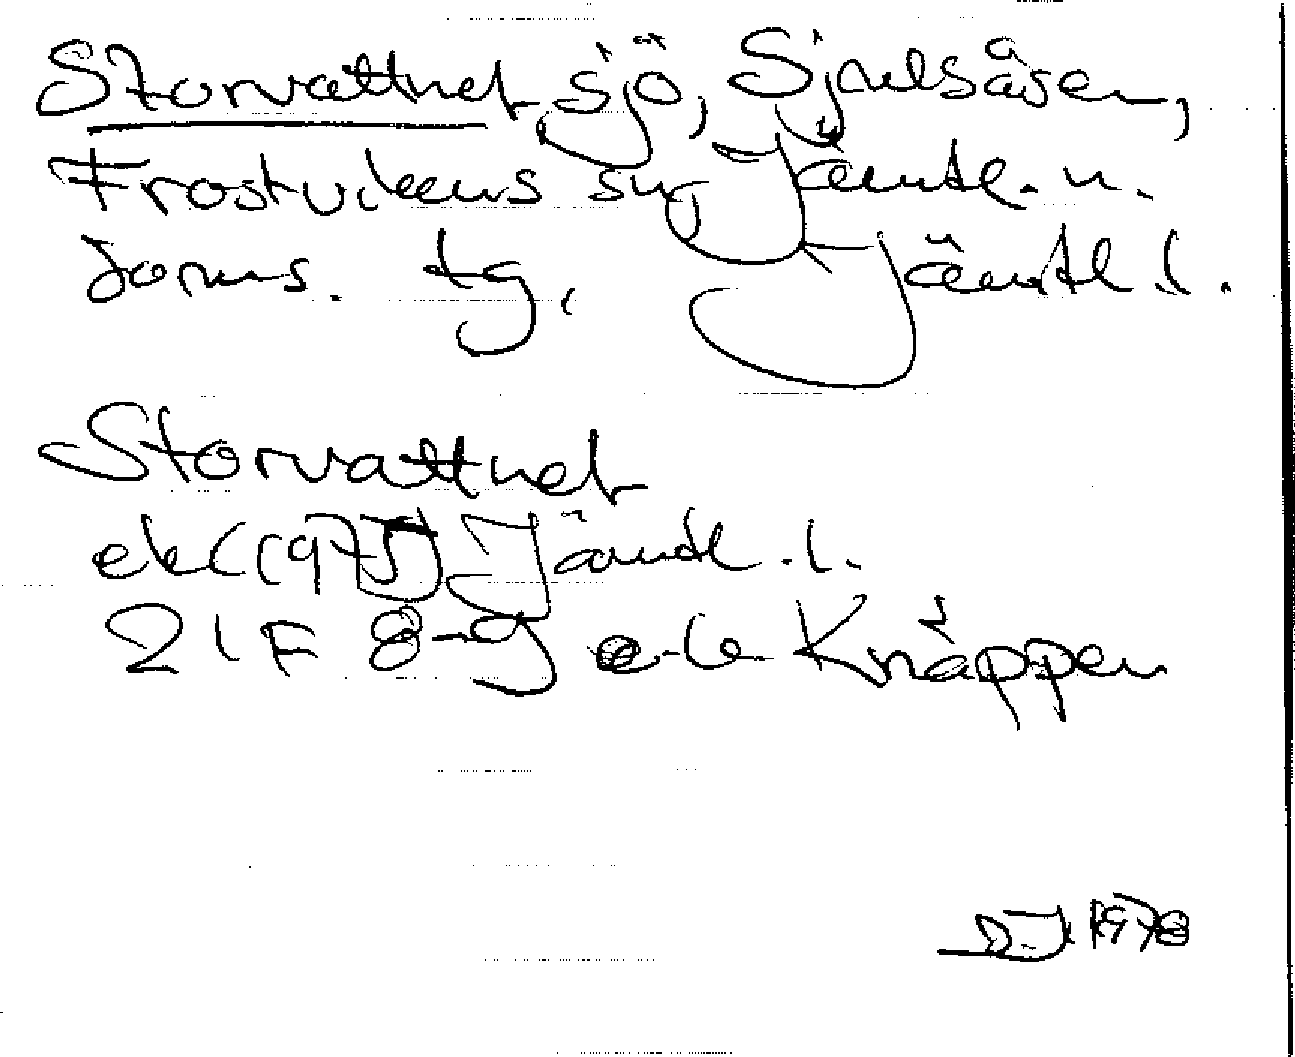 Storvattnet sjö, Sjulsåsen,
Frostvikens sn, Jämtl. n.
doms. tg, Jämtl. l.
Storvattnet
ek (1975) Jämtl. l.
21F 8-9 e-b Knäppen
1978